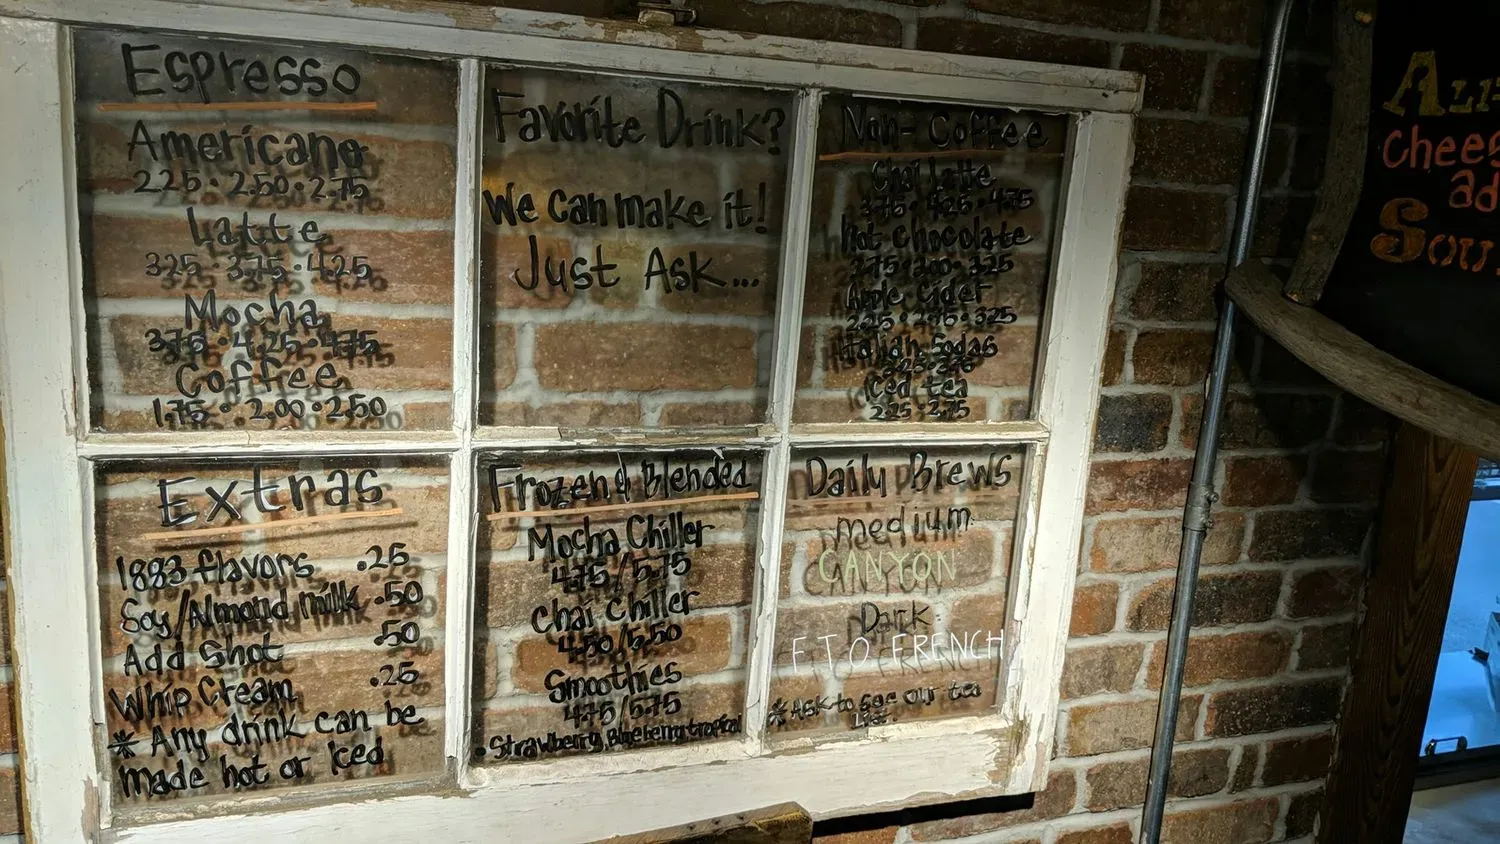 Espresso
Americano
2.25 • 2.50 • 2.75
Latte
3.25 • 3.75 • 4.25
Mocha
3.75 • 4.25 • 4.75
Coffee
1.75 • 2.00 • 2.50
Favorite Drink?
We can make it!
Just Ask...
Non-Coffee
Chai Latte
3.75 • 4.25 • 4.75
hot chocolate
2.75 • 3.25
Apple Cider
2.25 • 2.75 • 3.25
Italian Sodas
Iced tea
2.25 • 2.75
Extras
1883 flavors .25
Soy/Almond milk .50
Add Shot .50
Whip Cream .25
* Any drink can be
made hot or Iced
Frozen & Blended
Mocha Chiller
4.75/5.75
Chai Chiller
4.50/5.50
Smoothies
4.75/5.75
• Strawberry, Blueberry, tropical
Daily Brews
medium
CANYON
Dark
F.T.O. FRENCH
* Ask to see our tea
List.